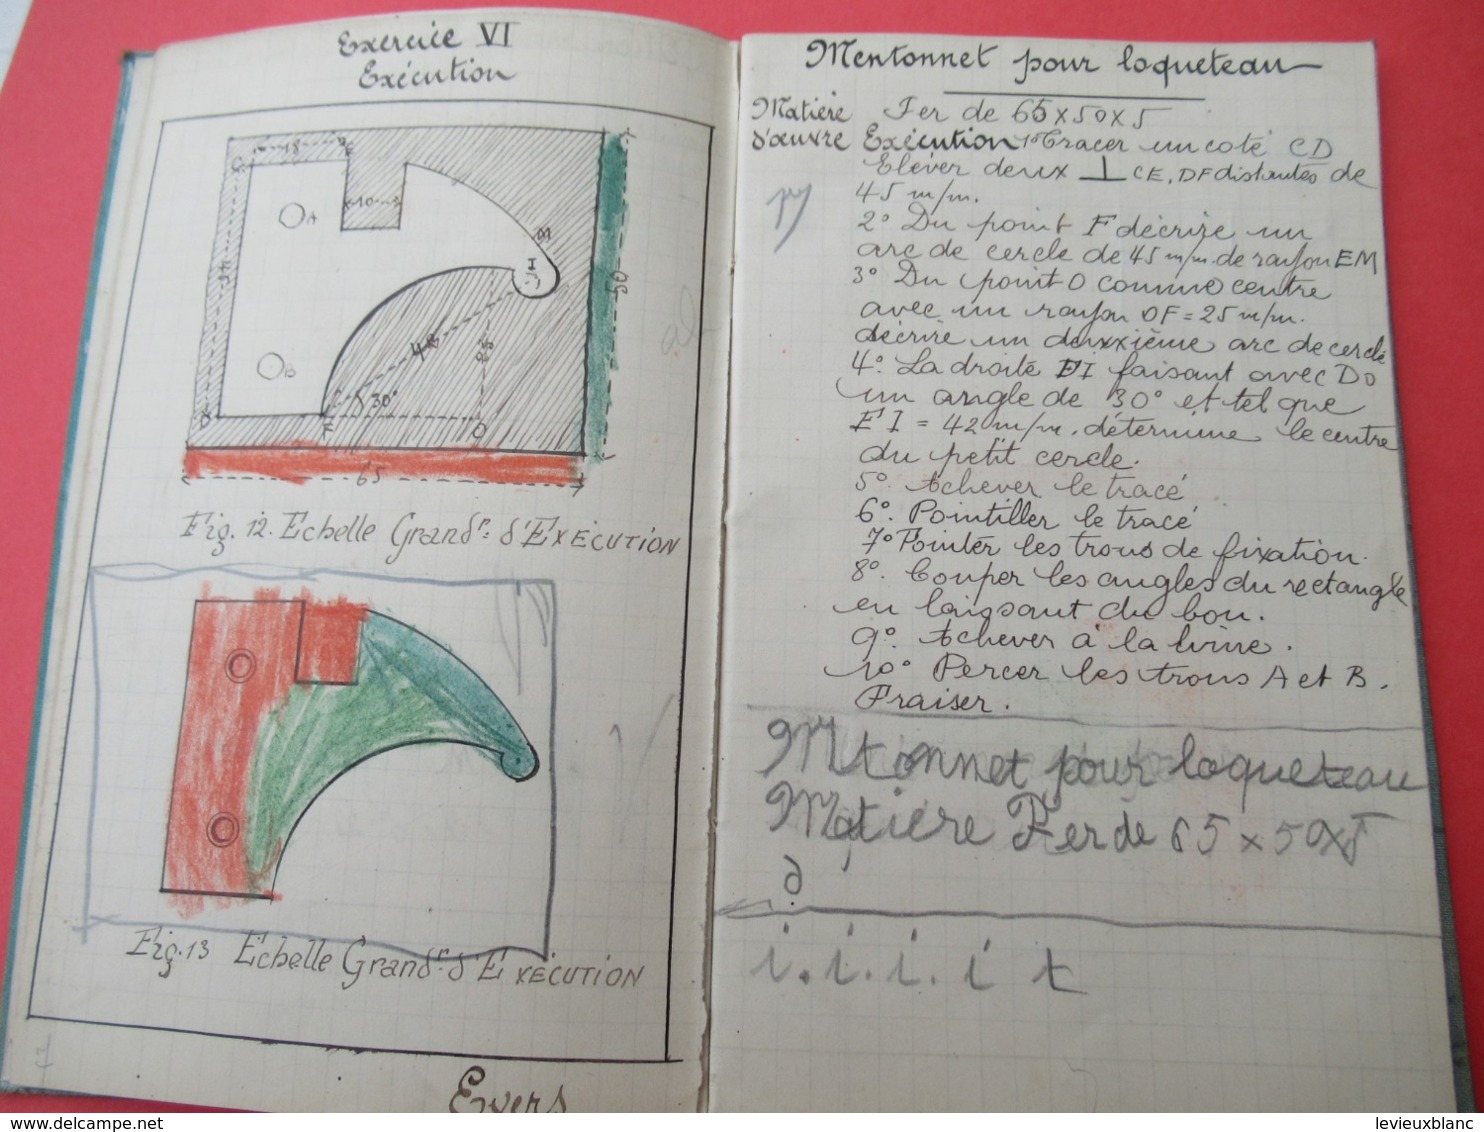 Exercice VI
Exécution
C
18
E
10
A
45
M
I
50
B
42
25
30°
D
F
O
65
Fig. 12. Echelle Grandr. d'EXÉCUTION
Fig. 13 Echelle Grandr. d'EXÉCUTION
Evers
Mentonnet pour loqueteau
Matière Fer de 65x50x5
d'œuvre Exécution 1° Tracer un coté CD
Elever deux ⊥ CE, DF distantes de
45 m/m.
2° Du point F décrire un
arc de cercle de 45 m/m. de rayon EM
3° Du point O comme centre
avec un rayon OF = 25 m/m.
décrire un deuxxième arc de cercle
4° La droite FI faisant avec DO
un angle de 30° et tel que
FI = 42 m/m. détermine le centre
du petit cercle.
5° Achever le tracé
6°. Pointiller le tracé
7° Pointer les trous de fixation.
8°. Couper les angles du rectangle
en laissant du bon.
9°. Achever à la lime.
10° Percer les trous A et B.
Fraiser.
Mtonnet pour loqueteau
Matière Fer de 65 x 50x5
d
i. i. i. i t
www.delcampe.net
levieuxblanc